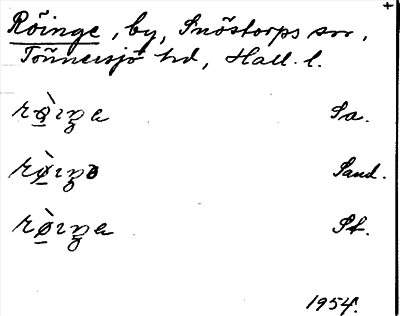 Röinge, by, Snöstorps sn,
Tönnersjö hd, Hall. l.
rø̀ıŋe Sa.
rø̀ıŋə Sand.
rø̀ıŋe St.
1954.